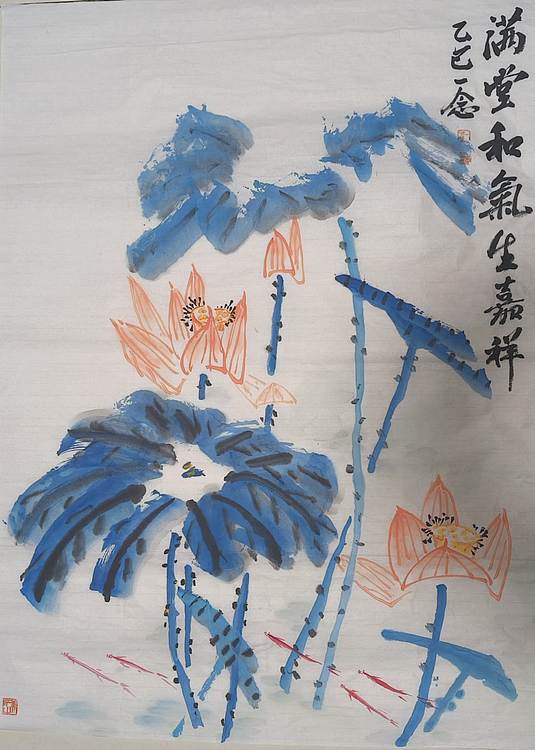 满堂和氣生嘉祥
乙巳一念